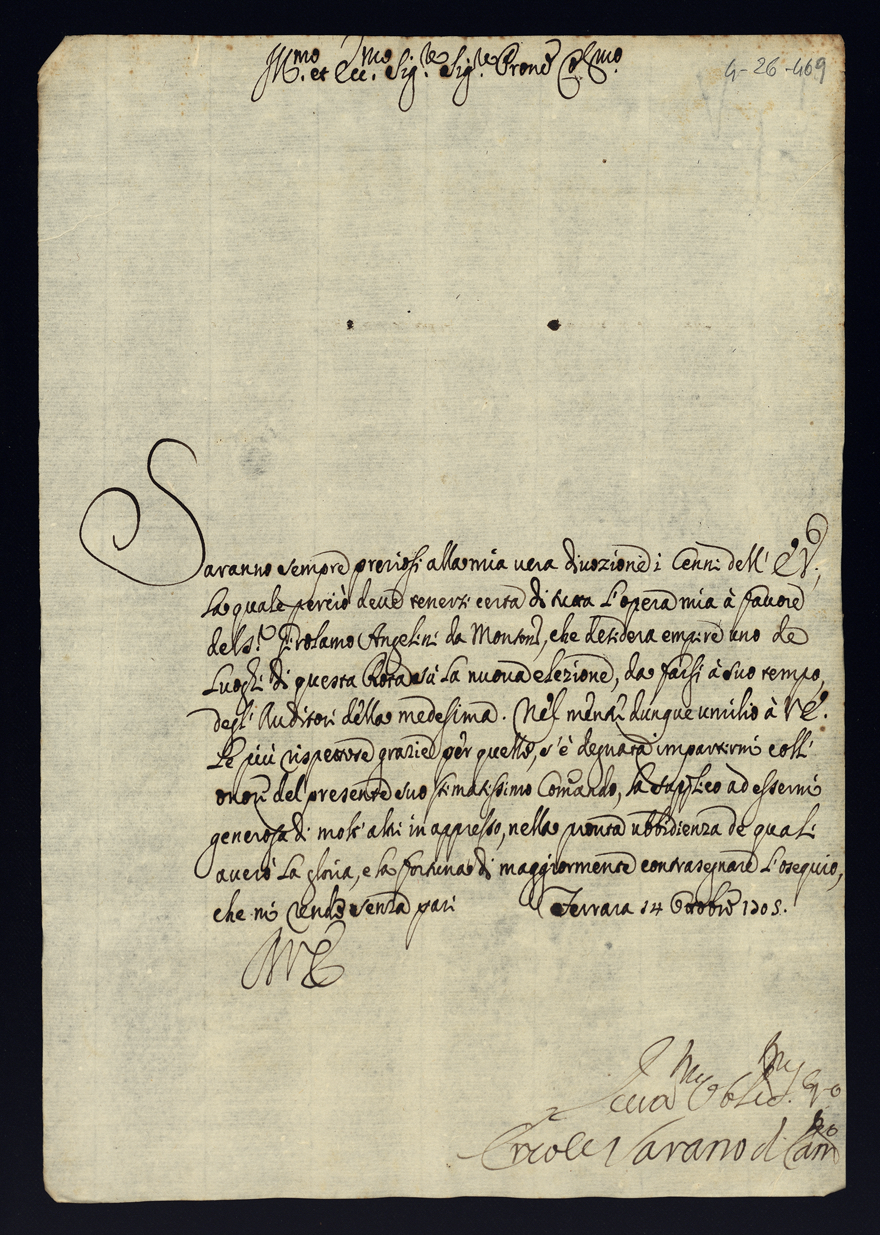 Ill.mo et Ecc.mo Sig.re Sig.re Prone Col.mo
4-26-469
Saranno sempre preziosi alla mia vera divozione i Cenni dell' E.V.,
la quale perciò deve tenersi certa di tutta l'opera mia à favore
del s.r Girolamo Angelini da Montone, che desidera empire uno de
Luoghi di questa Rota sù la nuova elezione, da farsi à suo tempo,
degl' Auditori della medesima. Nel mentre dunque umilio à V.E.
le più rispettose grazie per quello, s'è degnata impartirmi colli
onori del presente suo stimatissimo Comando, la supplico ad essermi
generosa di molt' altri in appresso, nella pronta ubbidienza de quali
averò la gloria, e la fortuna di maggiormente contrasegnare l'osequio,
che mi rende senza pari Ferrara 14 Ottobre 1705.
D V E
Ercole Varano d Cam